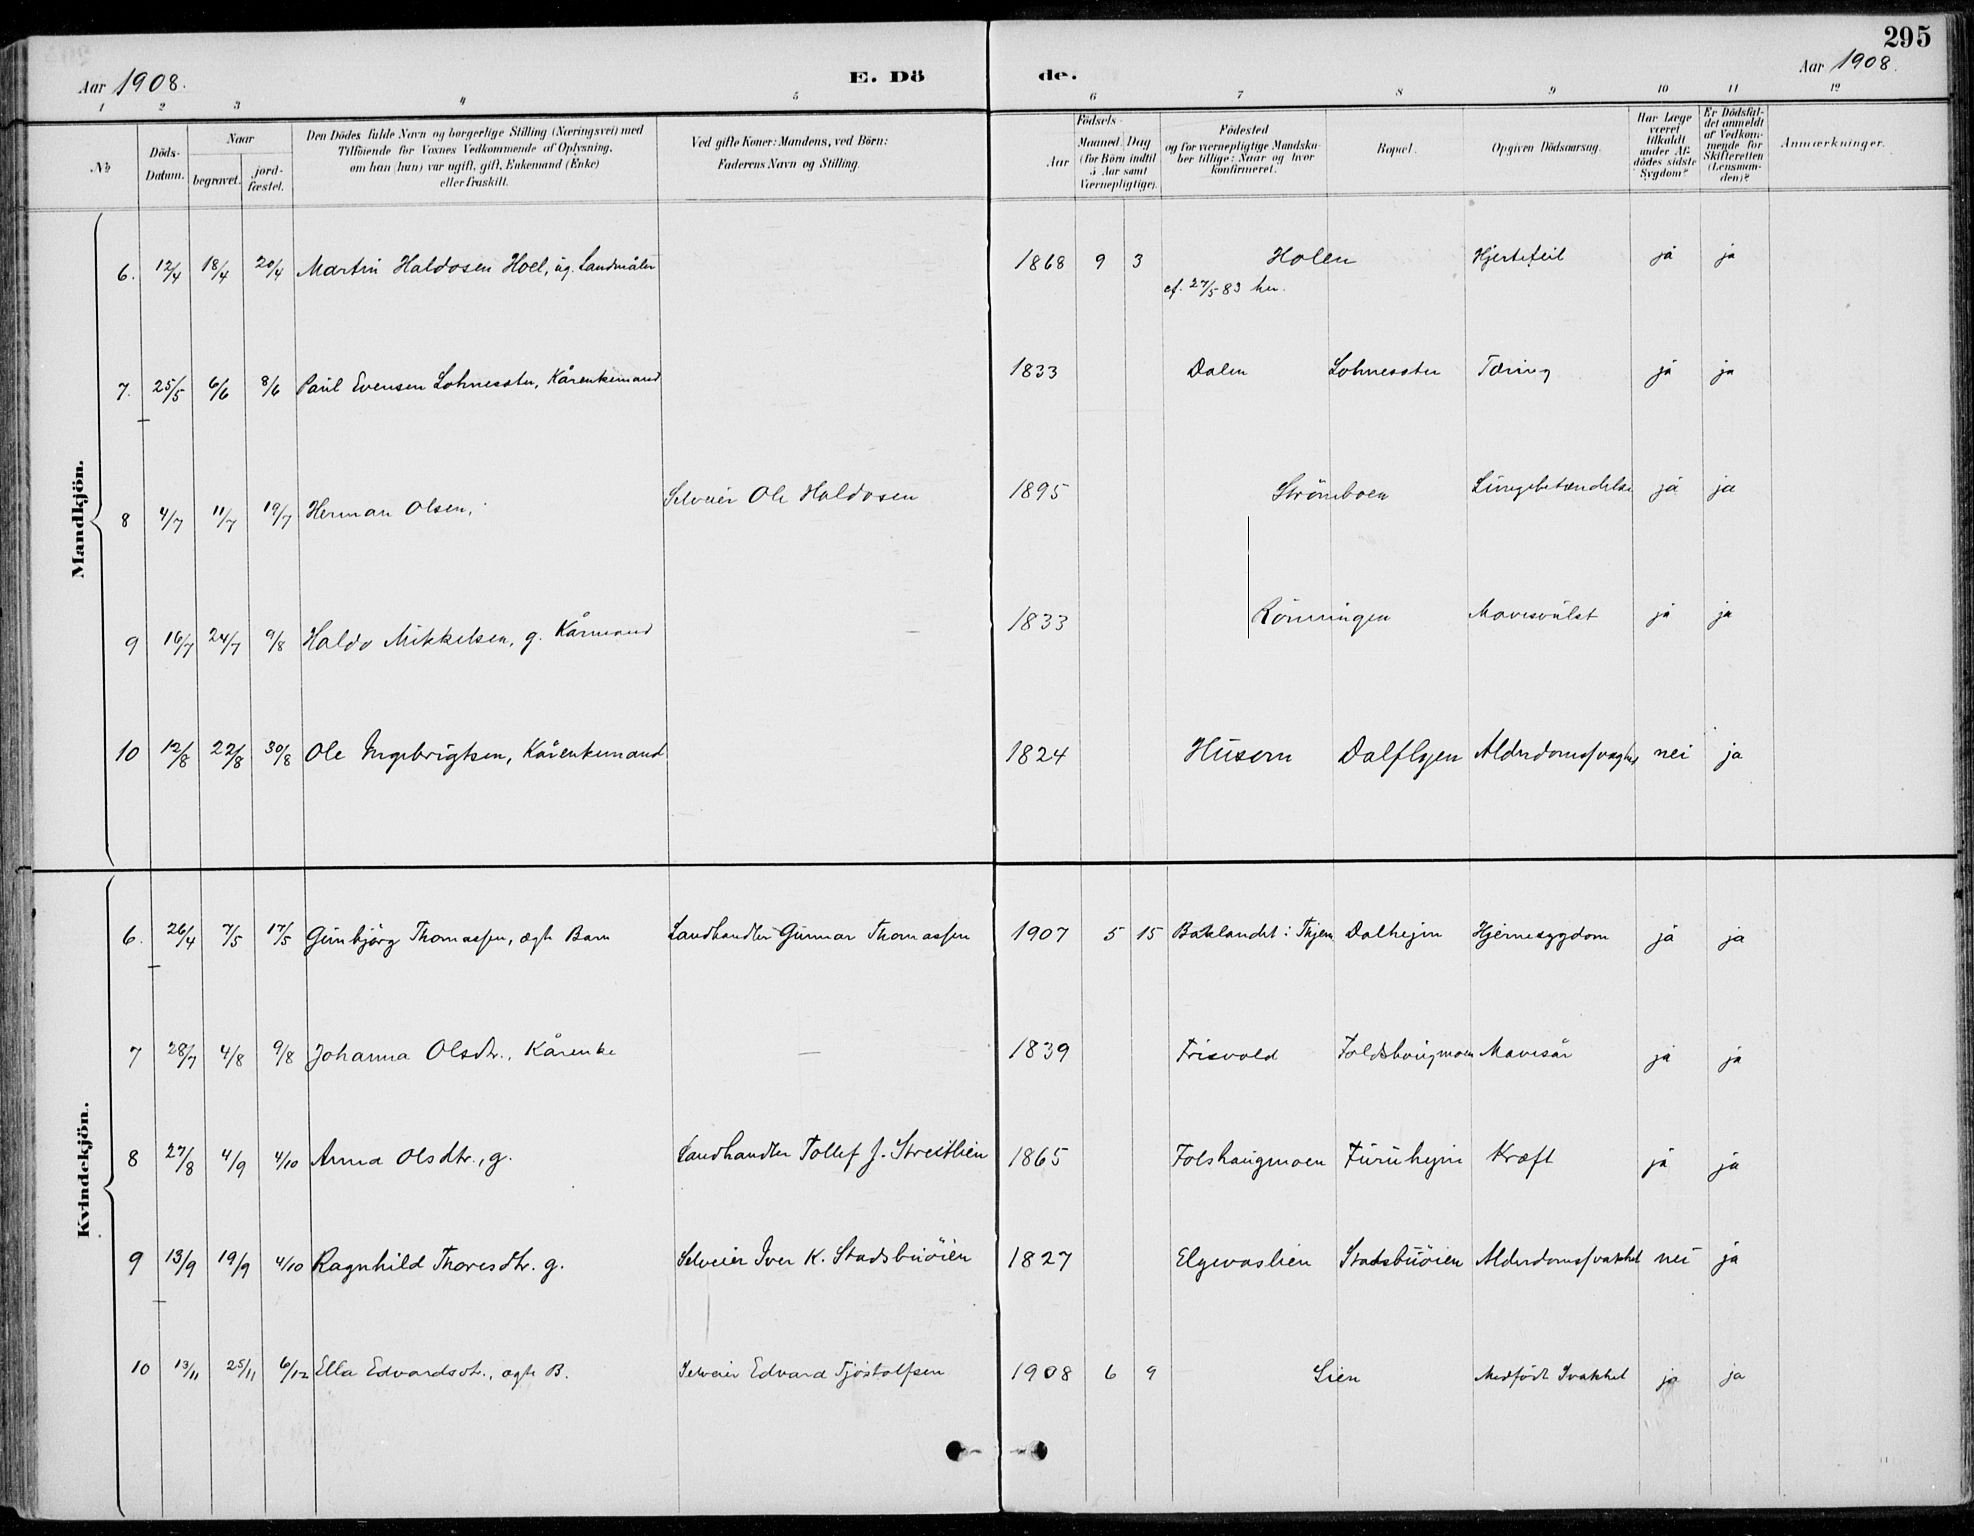 295
Aar 1908. E. Dö de. Aar 1908.
1 2 3 4 5 6 7 8 9 10 11 12
No
Döds-Datum.
Naar
begravet.
jord-fæstet.
Den Dödes fulde Navn og borgerlige Stilling (Næringsvei) med
Tilföiende for Voxnes Vedkommende af Oplysning,
om han (hun) var ugift, gift, Enkemand (Enke)
eller fraskilt.
Ved gifte Koner: Mandens, ved Börn:
Faderens Navn og Stilling.
Födsels-
Aar
Maaned Dag
(for Börn indtil
5 Aar samt
Værnepligtige).
Födested
og for værnepligtige Mandska-
ber tillige: Naar og hvor
konfirmeret.
Bopæl.
Opgiven Dödsaarsag.
Har Læge
været
tilkaldt
under Af-
dödes sidste
Sygdom?
Er Dödsfal-
det anmeldt
af Vedkom-
mende for
Skifteretten
(Lensman-
den)?
Anmærkninger.
Mandkjön.
6. 12/4 18/4 20/4 Martin Haldosen Hoel, ug. Landmåler 1868 9 3 Holen Hjertefeil ja ja
cf. 27/5 83 her.
7. 25/5 6/6 8/6 Paul Evensen Lohnesster, Kårenkemand 1833 Dalen Lohnesster Tæring ja ja
8 4/7 11/7 19/7 Herman Olsen, Selveier Ole Haldosen 1895 Strömboen Lungebetændelse ja ja
9 16/7 24/7 9/8 Haldo Mikkelsen, g. Kårmand 1833 Rönningen Mavesvülst ja ja
10 12/8 22/8 30/8 Ole Ingebrigtsen, Kårenkemand 1824 Husom Dalflyen Alderdomssvaghed nei ja
Kvindekjön.
6. 26/4 7/5 17/5 Gunbjörg Thomassen, ægte Barn Landhandler Gunnar Thomassen 1907 5 15 Baklandet: Thjem Dalhejm Hjernesygdom ja ja
7 28/7 4/8 9/8 Johanna Olsdtr., Kårenke — 1839 Frisvold Foldshaugmoen Mavesår ja ja
8 27/8 4/9 4/10 Anna Olsdtr., g. Landhandler Tollef J. Streitlien 1865 Folshaugmoen Furuhejm Kræft ja ja
9 13/9 19/9 4/10 Ragnhild Thoresdtr. g. Selveier Iver K. Stadsbuöien 1827 Elgevaslien Stadsbuöien Alderdomssvakhet nei ja
10 13/11 25/11 6/12 Ella Edvardsdtr., ægte B. Selveier Edvard Tjöstolfsen 1908 6 9 Lien Medfödt Svakhet ja ja